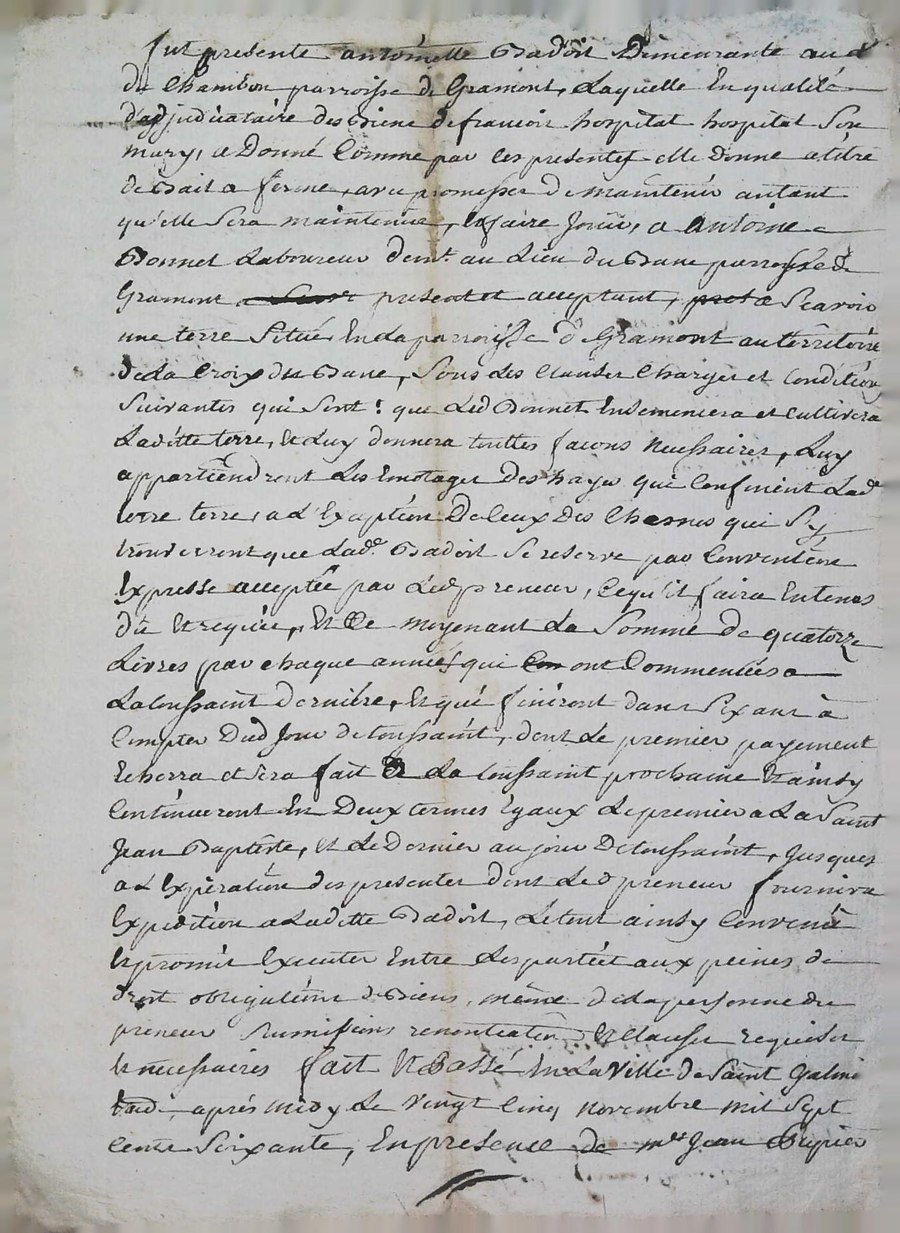 fut presente antoinette Badoit Demeurante au
du Chambon parroisse de Gramont, Laquelle En qualité
d'adjudicataire des Biens de francois hospital hospital Son
mary, a Donné Comme par Ces presentes elle donne a titre
de Bail a ferme, avec promesses de maintenir autant
qu'elle Sera maintenue, Et faire Jouir, a Antoine
Bonnet Laboureur demt. au Lieu du Bane parroisse de
Gramont present et acceptant, Scavoir
une terre Situé En La parroisse de Gramont au territoire
de La Croix du Bane, Sous Les Clauses Charges et Condition
Suivantes qui Sont : que Led Bonnet Ensemencera et Cultivera
Laditte terre, Et Luy donnera touttes facons necessaires, Luy
appartiendront Les Emotages Des hayes qui Confinent Lade
terre, a L'Exception De Ceux Des Chesnes qui S'y
trouverront que Lade. Badoit Se reserve par Convention
Expresse acceptée par Led preneur, Ce qu'il faira En tems
dû Et requis, Et Ce moyenant La Somme de quatorze
Livres par chaque années qui ont Commencées a
La toussaint derniére, Et qui finiront dans Six ans à
Compter Dud Jour de toussaint, dont Le premier payement
Echerra et Sera fait La toussaint prochaine Et ainsy
Continueront En Deux termes Egaux Le premier a La Saint
Jean Baptiste, Et Le Dernier au jour De toussaint, Jusques
a L'Expiration des presentes dont Led preneur fournira
Expedition a Laditte Badoit, Le tout ainsy Convenû
Et promis Executer Entre Les parties aux peines de
droit obligations de Biens, même de La personne du
preneur Soumissions renonciation Et Clauses requises
Et necessaires fait Et Passé En La Ville de Saint Galmi
aprés midy Le Vingt Cinq novembre mil Sept
Cents Soixante, En presence de Jean